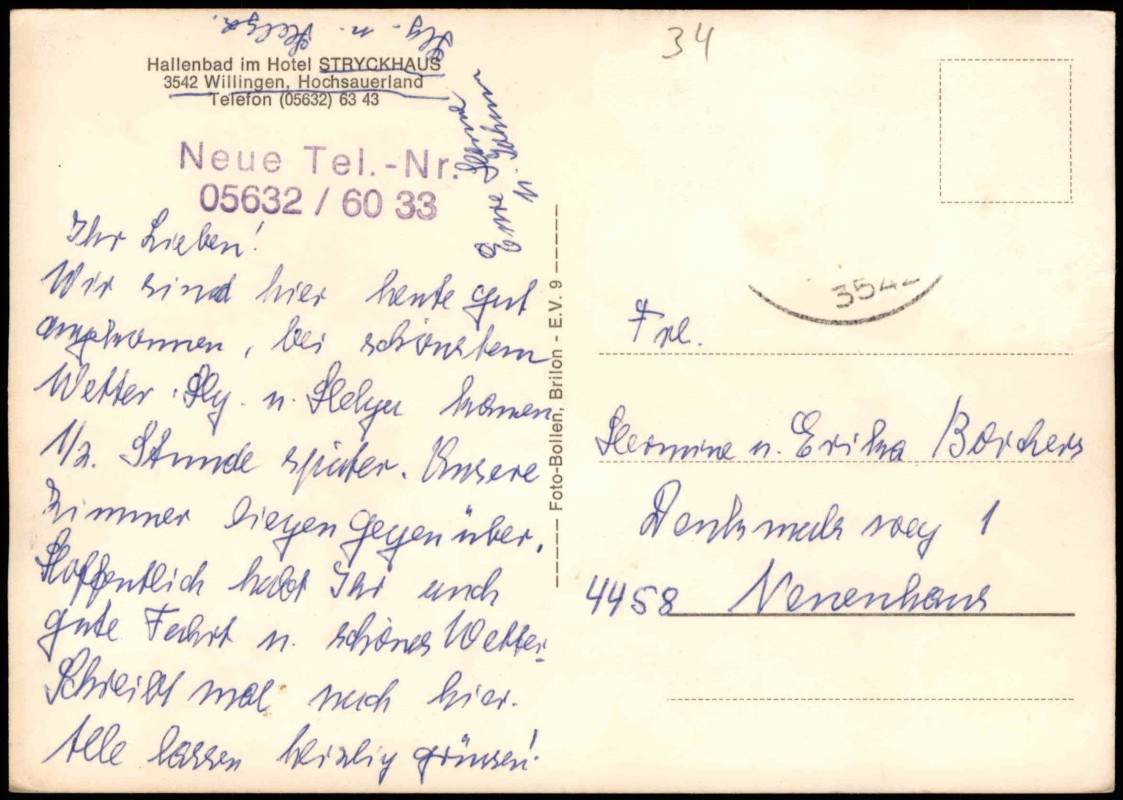 Hallenbad im Hotel STRYCKHAUS
3542 Willingen, Hochsauerland
Telefon (05632) 63 43
Neue Tel.-Nr.
05632 / 60 33
Ihr Lieben!
Wir sind hier heute gut
angekommen, bei schönstem
Wetter. Hg. u. Helga kamen
1/2 Stunde später. Unsere
Zimmer liegen gegenüber.
Hoffentlich habt Ihr auch
gute Fahrt u. schönes Wetter.
Schreibt mal nach hier.
Alle lassen herzlig grüssen!
Eure
u.
Hg. u. Helga.
Foto-Bollen, Brilon - E.V. 9
34
3542
Frl.
Hermine u. Erika Borchers
Denkmalsweg 1
4458 Neuenhaus